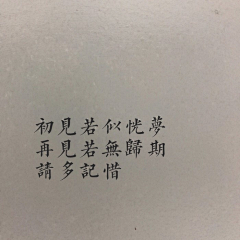 初見若似恍夢
再見若無歸期
請多記惜